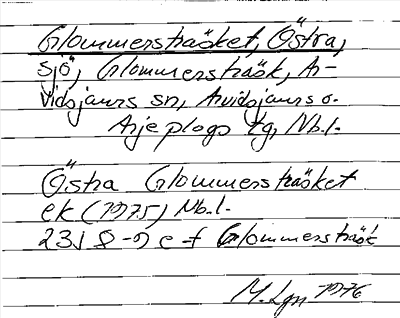 Glommersträsket, Östra,
sjö, Glommersträsk, Ar-
vidsjaurs sn, Arvidsjaurs o.
Arjeplogs tg, Nb.l.
Östra Glommersträsket
ek (1975) Nb.l.
23J 8-9 e-f Glommersträsk
M. Lgn 1976